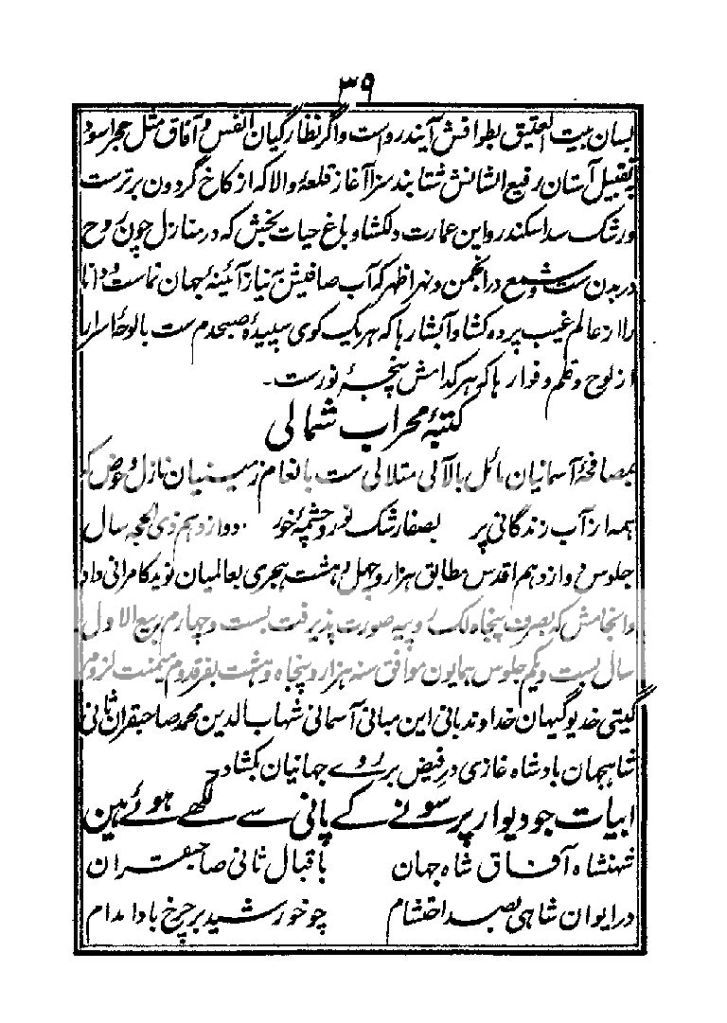 ۳۹
بسان بیت العتیق بطوافش آیند رواست واگر نظارگیان انفس و آفاق مثل حجر اسود
بتقبیل آستان رفیع الشانش شتابند سزا آغاز قلعهٔ والا که از کاخ گردون برترست
ورشک سد اسکندر و این عمارت دلکشا و باغ حیات بخش که در منازل چون روح
در بدن ست و شمع در انجمن و نهر اطهر که آب صافیش بے نیاز آئینهٔ جهان نماست و دانا
را از عالم غیب پرده کشا و آبشار ها که هر یک گوی سپیدهٔ صبحدم ست یا لوحهٔ اسرار
از لوح و قلم و فوارها که هر کدامش پنجهٔ نورست۔
کتبهٔ محراب شمالی
بمصافحهٔ آسمانیان مائل یا لآلی متلالی ست بانعام زمینیان نازل و حوض کہ
همه از آب زندگانی پر بصفا رشک نور و چشمهٔ خور دوازدهم ذی الحجه سال
جلوس دوازدهم اقدس مطابق هزار و چهل و هشت هجری بعالمیان نوید کامرانی داد
و انجامش که بصرف پنجاه لک روپیه صورت پذیرفت بست و چهارم ربیع الاول
سال بست و یکم جلوس همایون موافق سنه هزار و پنجاه و هشت بفر قدوم میمنت لزوم
گیتی خدیو گیهان خداوند بانی این مبانی آسمانی شهاب الدین محمد صاحبقران ثانی
شاهجهان بادشاه غازی در فیض بر روے جهانیان بکشاد۔
ابیات جو دیوار پر سونے کے پانی سے لکھے ہوئے ہین
شهنشاه آفاق شاه جهان باقبال ثانی صاحبقران
در ایوان شاهی بصد احتشام چو خورشید بر چرخ بادا مدام